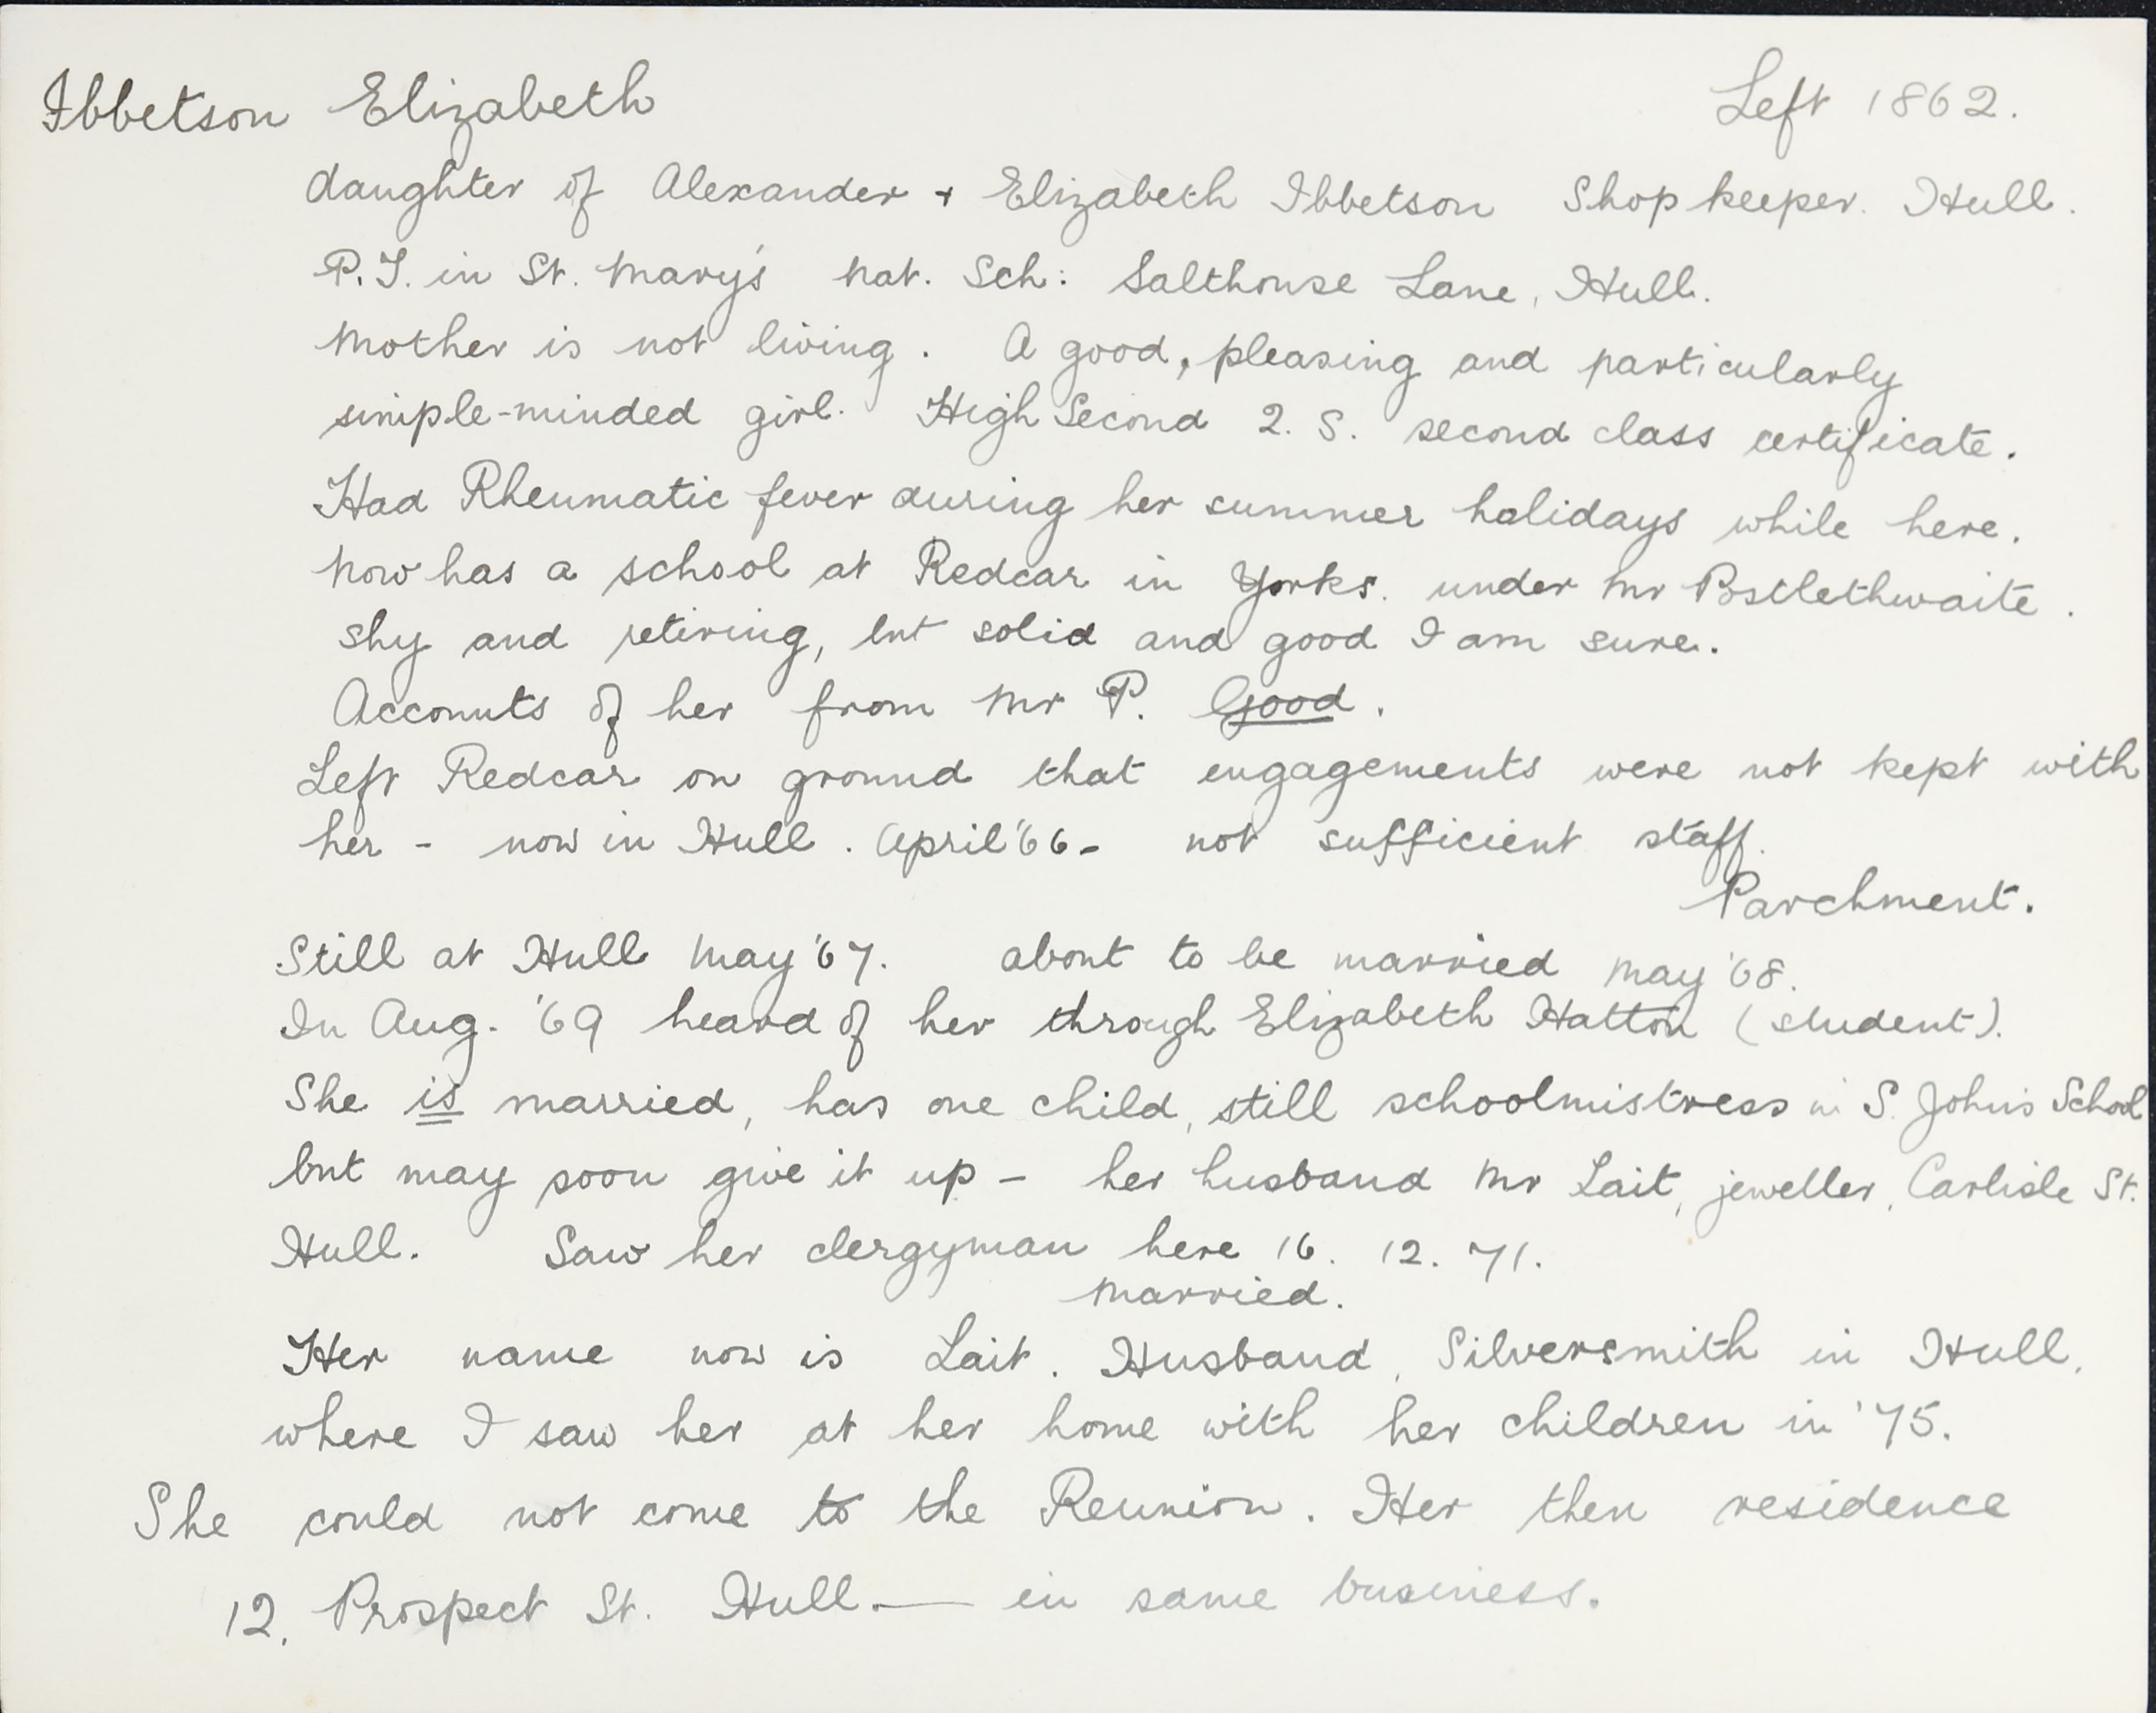 Ibbetson Elizabeth Left 1862.
daughter of Alexander + Elizabeth Ibbetson Shopkeeper. Hull.
P.T. in St. Mary's Nat. Sch: Salthouse Lane, Hull.
Mother is not living. A good, pleasing and particularly
simple-minded girl. High Second 2. S. second class certificate.
Had Rheumatic fever during her summer holidays while here.
Now has a school at Redcar in Yorks. under Mr Postlethwaite.
Shy and retiring, but solid and good I am sure.
Accounts of her from Mr P. Good.
Left Redcar on ground that engagements were not kept with
her - now in Hull. April '66 - not sufficient staff.
Parchment.
Still at Hull May '67. about to be married May '68.
In Aug. '69 heard of her through Elizabeth Hatton (student).
She is married, has one child, still schoolmistress in S. John's School
but may soon give it up - her husband Mr Lait, jeweller, Carlisle St.
Hull. Saw her clergyman here 16. 12. 71.
Married.
Her name now is Lait. Husband, Silversmith in Hull,
where I saw her at her home with her children in '75.
She could not come to the Reunion. Her then residence
12, Prospect St. Hull. — in same business.